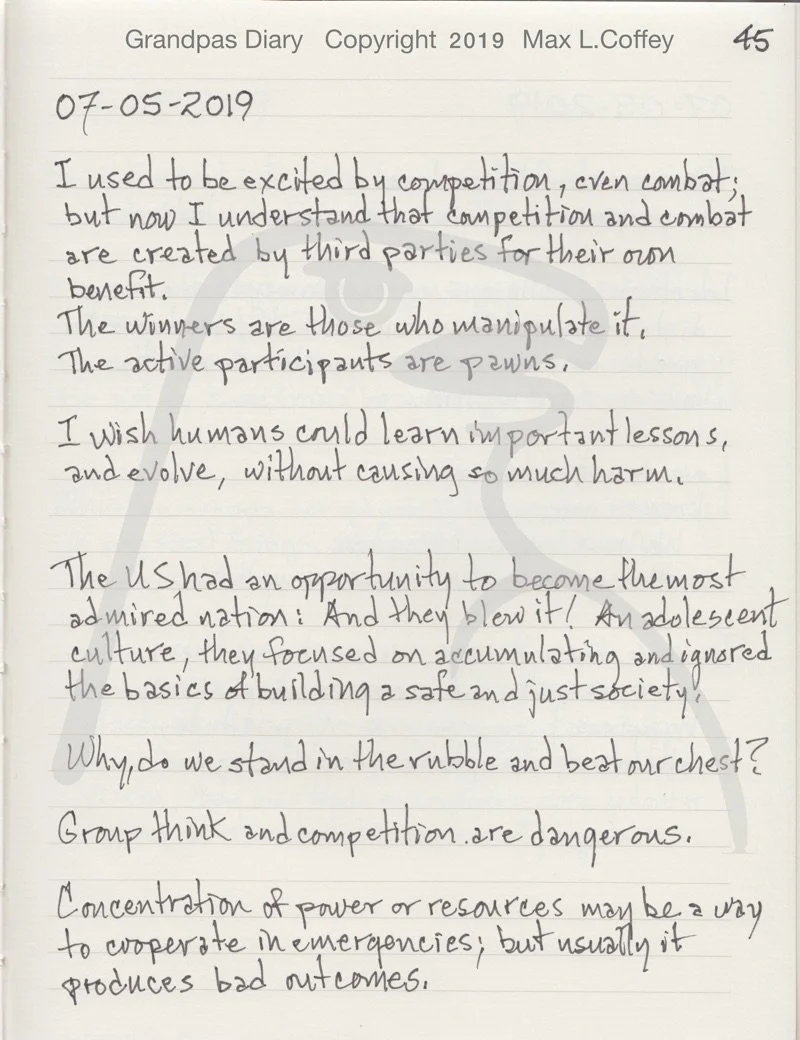 Grandpas Diary Copyright 2019 Max L.Coffey 45
07-05-2019
I used to be excited by competition, even combat;
but now I understand that competition and combat
are created by third parties for their own
benefit.
The winners are those who manipulate it.
The active participants are pawns.
I wish humans could learn important lessons,
and evolve, without causing so much harm.
The US had an opportunity to become the most
admired nation: And they blew it! An adolescent
culture, they focused on accumulating and ignored
the basics of building a safe and just society!
Why, do we stand in the rubble and beat our chest?
Group think and competition are dangerous.
Concentration of power or resources may be a way
to cooperate in emergencies; but usually it
produces bad outcomes.